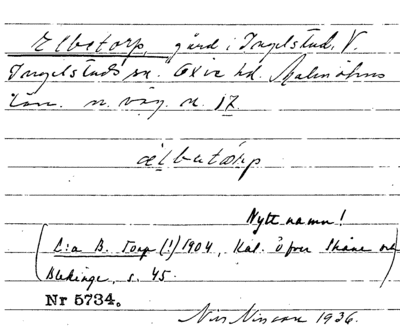 Elbetorp, gård i Ingelstad, V.
Ingelstads sn. Oxie hd. Malmöhus
län. n. väg. n. 17.
ælbatårp
Nytt namn!
(L:a B. Torp (!) 1904, Kal. öfver Skåne och
Blekinge, s. 45.)
Nr 5734.
1936.